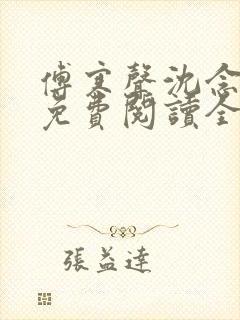 傅寒聲沈念
免費閱讀全
張益達